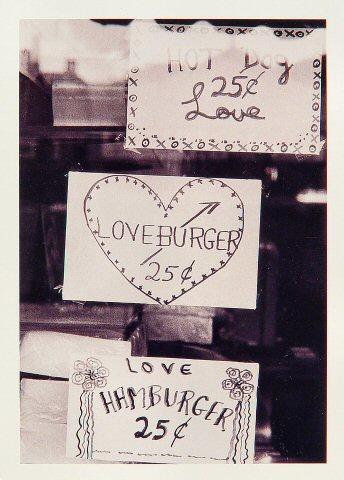 HOT Dog
25¢
Love
LOVEBURGER
25¢
LOVE
HAMBURGER
25¢